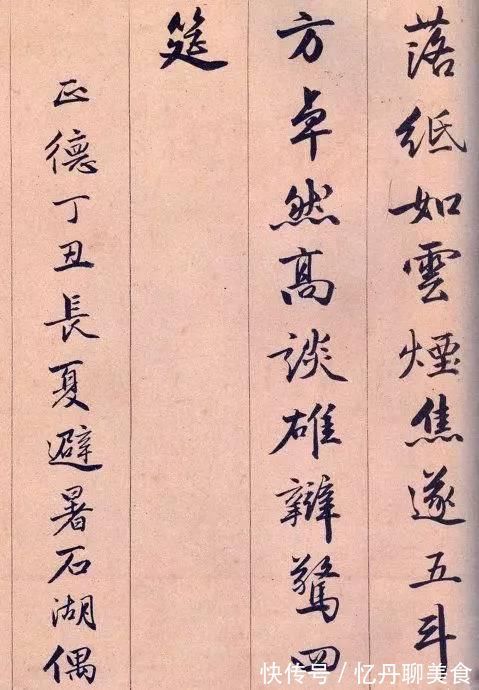 落紙如雲煙焦遂五斗
方卓然高談雄辯驚四
筵
正德丁丑長夏避暑石湖偶
快传号/忆丹聊美食